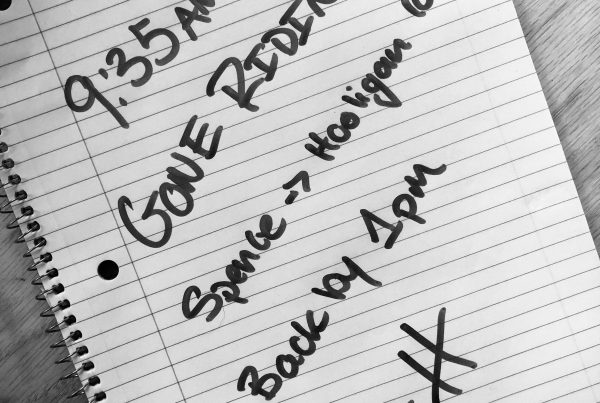 9:35 AM
GONE RIDIN
Spence -> Hooligan
Back by 1pm
XX